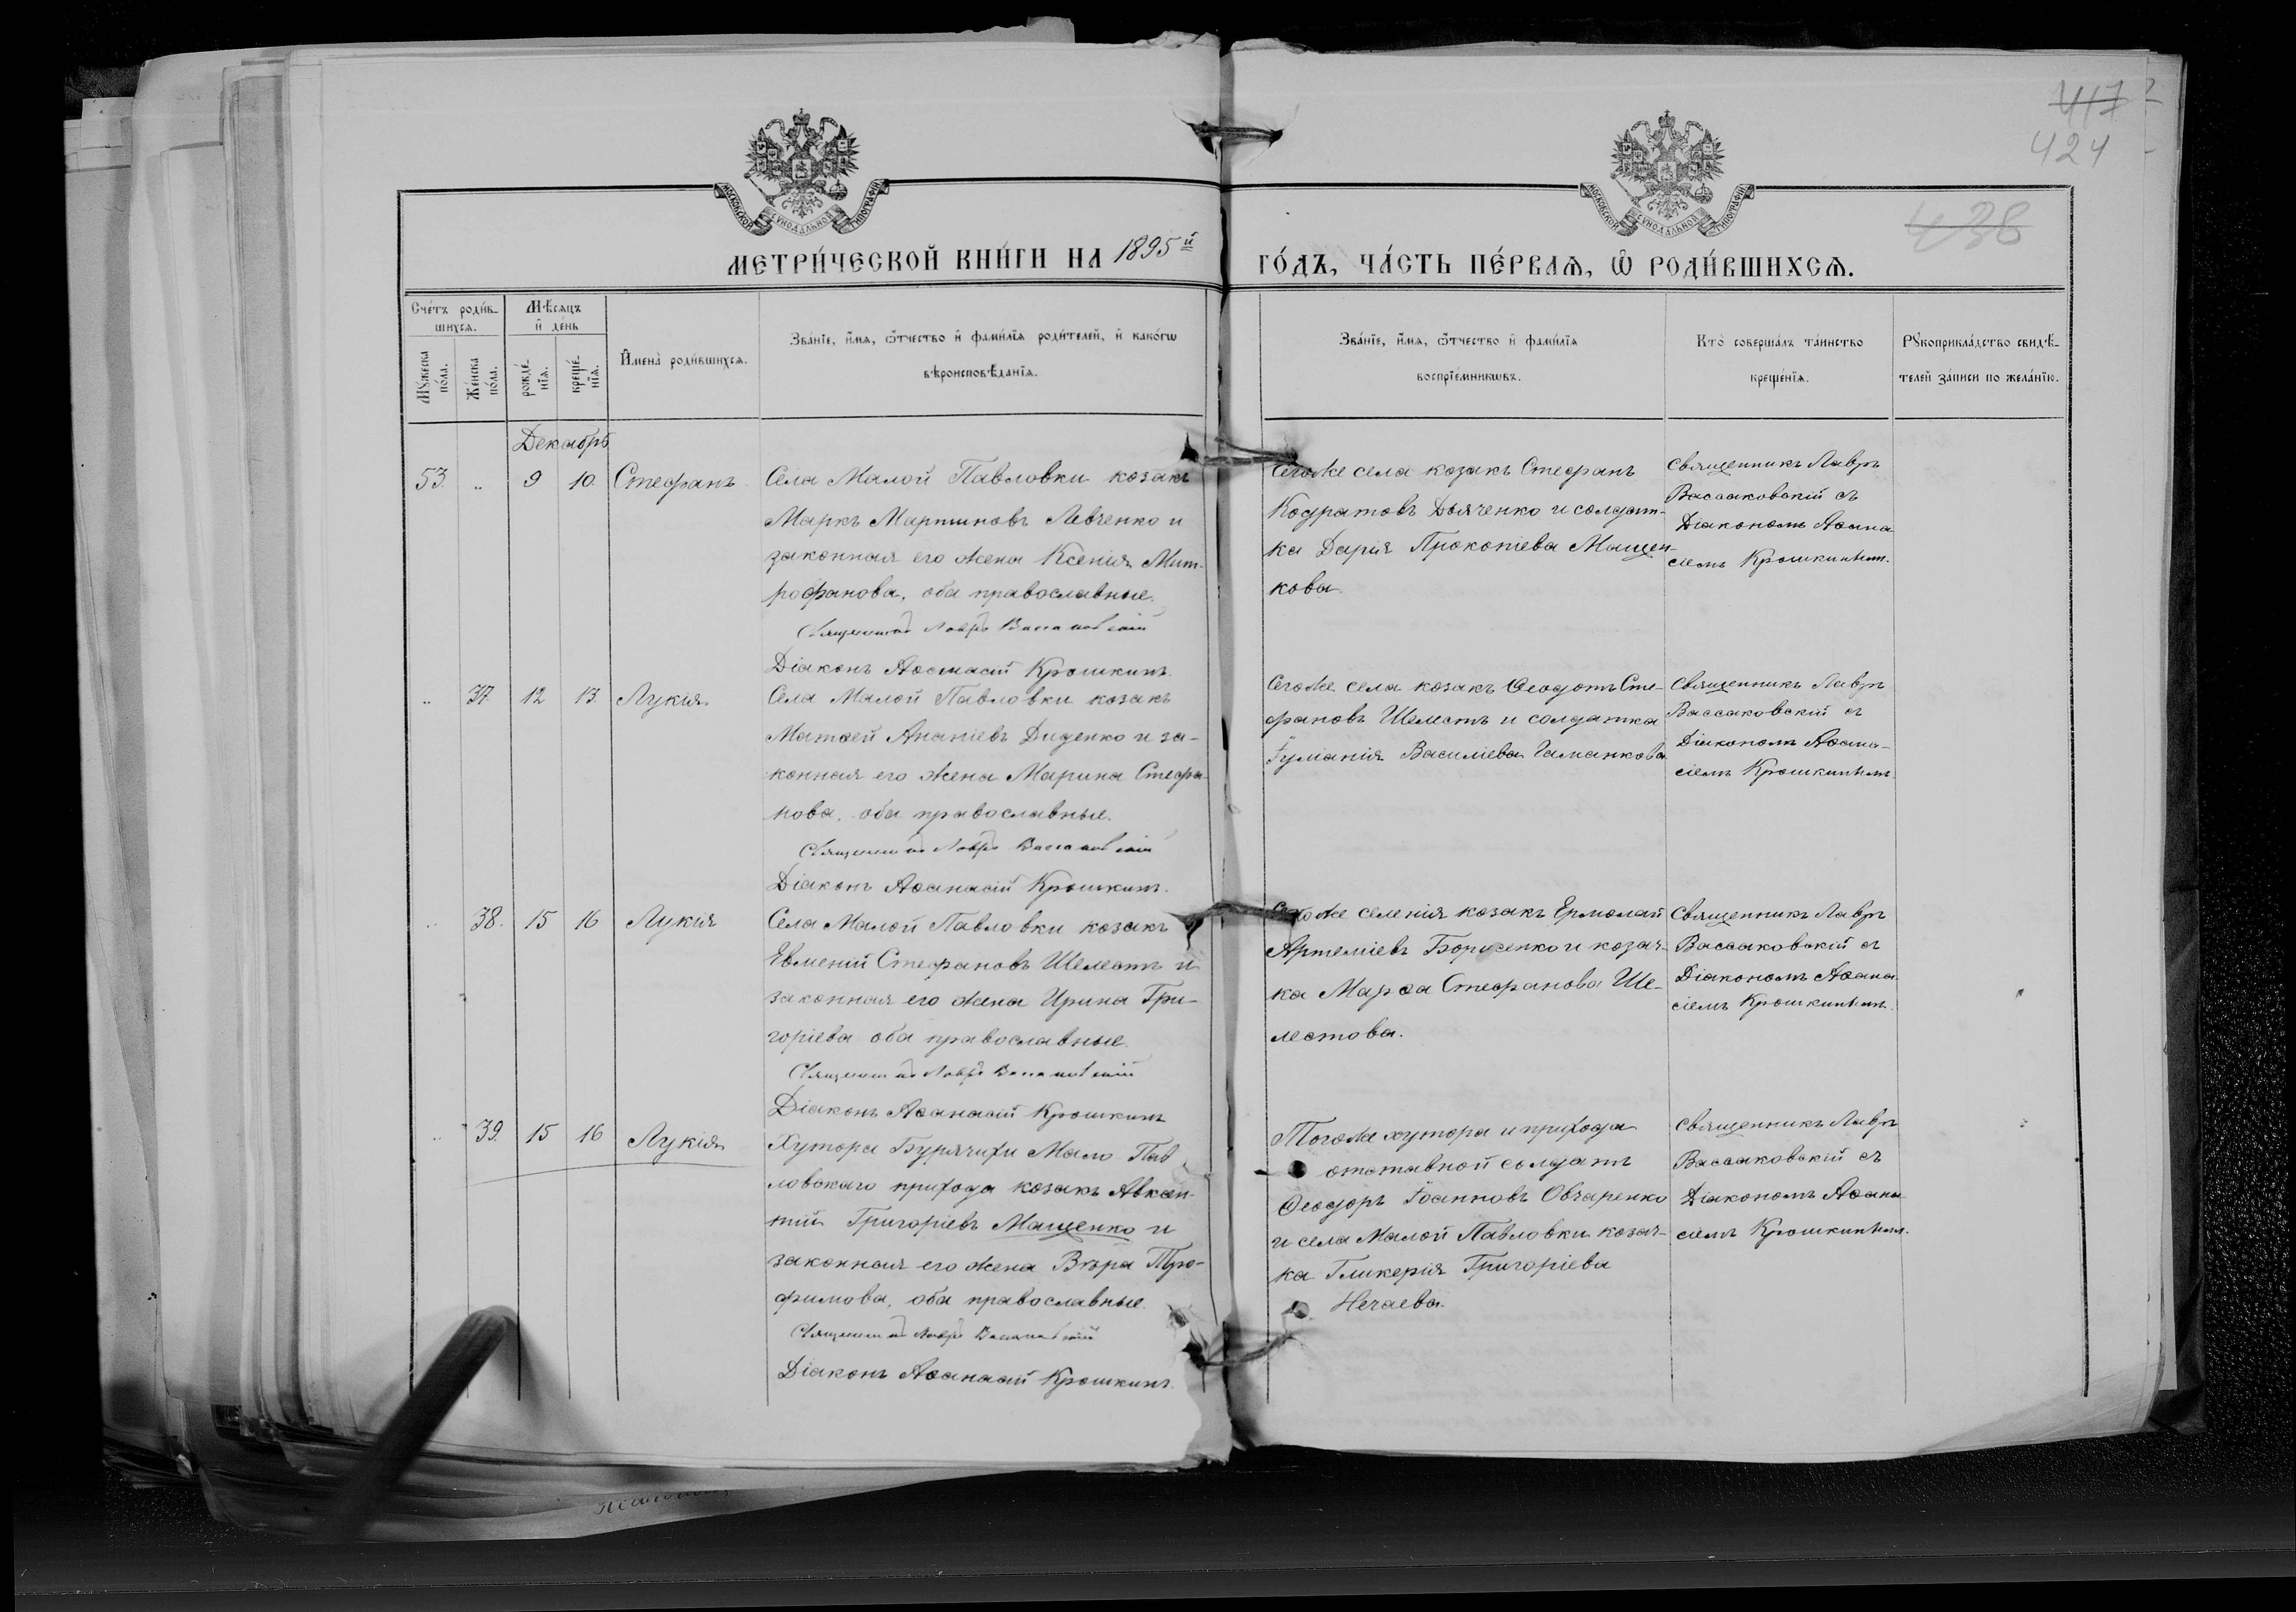 417
424
438
МОСКОВСКОЙ СѴНОДАЛЬНОЙ ТИПОГРАФІИ
МОСКОВСКОЙ СѴНОДАЛЬНОЙ ТИПОГРАФІИ
МЕТРИ́ЧЕСКОЙ КНИ́ГИ НА 1895й
ГО́ДЪ, ЧА́СТЬ ПЕ́РВАѦ, Ѽ РОДИ́ВШИХСѦ.
Сче́тъ роди́в-
шихсѧ.
Мꙋ́жеска по́ла.
Же́нска по́ла.
Мѣ́сѧцъ
и҆ де́нь
рожде́-нїѧ.
креще́-нїѧ.
И҆мена̀ роди́вшихсѧ.
Зва́нїе, и҆́мѧ, ѻ҆́тчество и҆ фами́лїѧ роди́телей, и҆ како́гѡ
вѣроисповѣ́данїѧ.
Зва́нїе, и҆́мѧ, ѻ҆́тчество и҆ фами́лїѧ
воспрїе́мникѡвъ.
Кто̀ соверша́лъ та́инство
креще́нїѧ.
Рꙋкоприкла́дство свидѣ́-
телей за́писи по жела́нїю.
Декабрь
53 „ 9 10. Стефанъ
Села Малой Павловки козакъ
Маркъ Мартиновъ Левченко и
законная его жена Ксенія Мит-
рофанова, оба православные.
Священникъ Лавръ Вассаковскій
Діаконъ Аѳанасій Крошкинъ.
Сегоже села козакъ Стефанъ
Кодратовъ Дьяченко и солдат-
ка Дарія Прокопіева Мащен-
кова.
Священникъ Лавръ
Вассаковскій съ
Діакономъ Аѳана
сіемъ Крошкинымъ.
„ 37 12 13. Лукія
Села Малой Павловки козакъ
Матѳей Ананіевъ Диденко и за-
конная его жена Марина Стефа-
нова, оба православные.
Священникъ Лавръ Вассаковскій
Діаконъ Аѳанасій Крошкинъ.
Сегоже села козакъ Ѳеодотъ Сте-
фановъ Шелестъ и солдатка
Іуліанія Василіева Гаманкова
Священникъ Лавръ
Вассаковскій съ
Діакономъ Аѳана-
сіемъ Крошкинымъ.
„ 38. 15 16 Лукія
Села Малой Павловки козакъ
Евмений Стефановъ Шелестъ и
законная его жена Ирина Гри-
горіева оба православные.
Священникъ Лавръ Вассаковскій
Діаконъ Аѳанасій Крошкинъ
Сегоже селенія козакъ Ермолай
Артеміевъ Борисенко и козач-
ка Марѳа Стефанова Ше-
лестова.
Священникъ Лавръ
Вассаковскій съ
Діакономъ Аѳана-
сіемъ Крошкинымъ.
„ 39. 15 16 Лукія
Хутора Бурячихи Мало Пав
ловскаго прихода козакъ Авксен-
тій Григоріевъ Мащенко и
законная его жена Вѣра Тро-
фимова, оба православные.
Священникъ Лавръ Вассаковскій
Діаконъ Аѳанасій Крошкинъ.
Тогоже хутора и прихода
отставной солдатъ
Ѳеодоръ Іоанновъ Овчаренко
и села Малой Павловки козач-
ка Гликерія Григоріева
Нечаева.
Священникъ Лавръ
Вассаковскій съ
Діакономъ Аѳана
сіемъ Крошкинымъ.